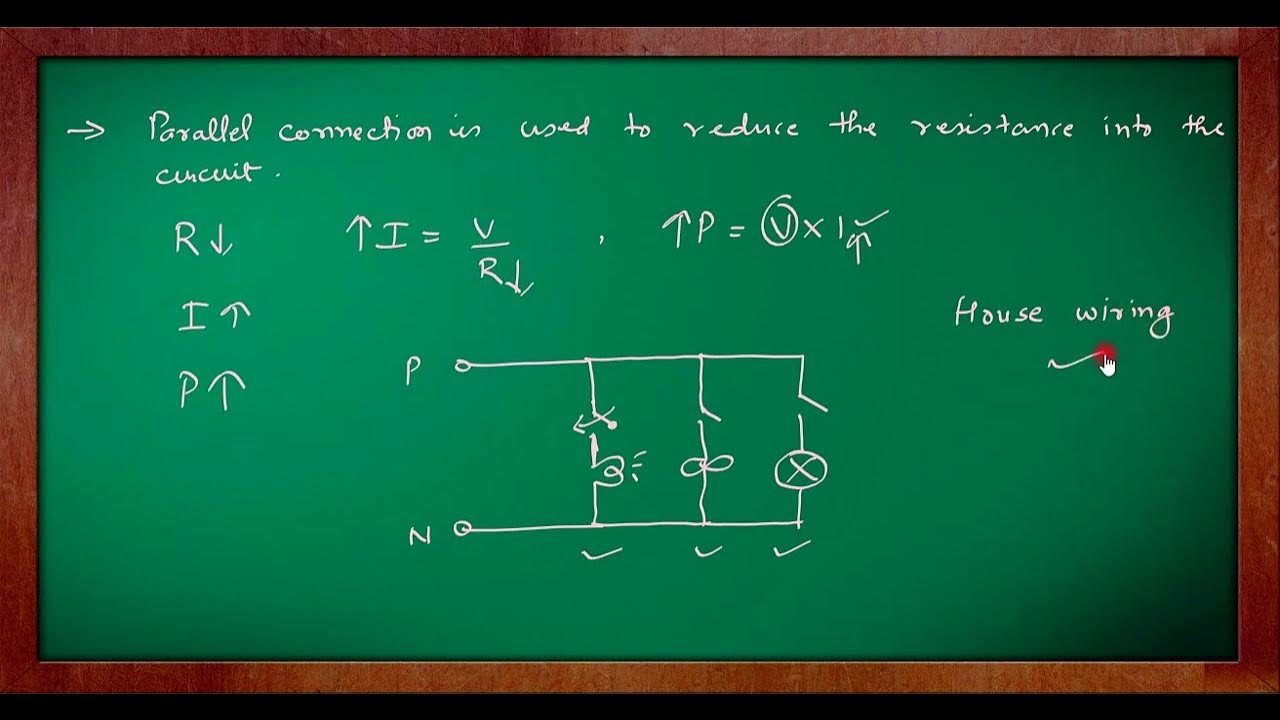 → Parallel connection is used to reduce the resistance into the
circuit.
R↓ ↑I = V/R↓ , ↑P = V × I↑
I↑
House wiring
P↑
P
N